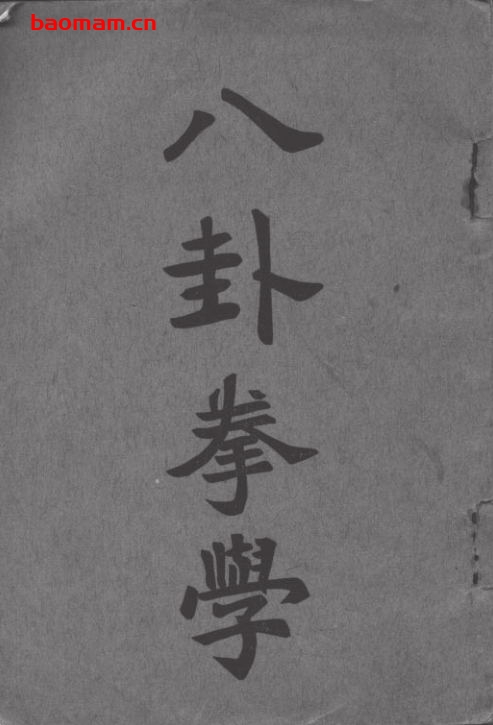 baomam.cn
八卦拳學